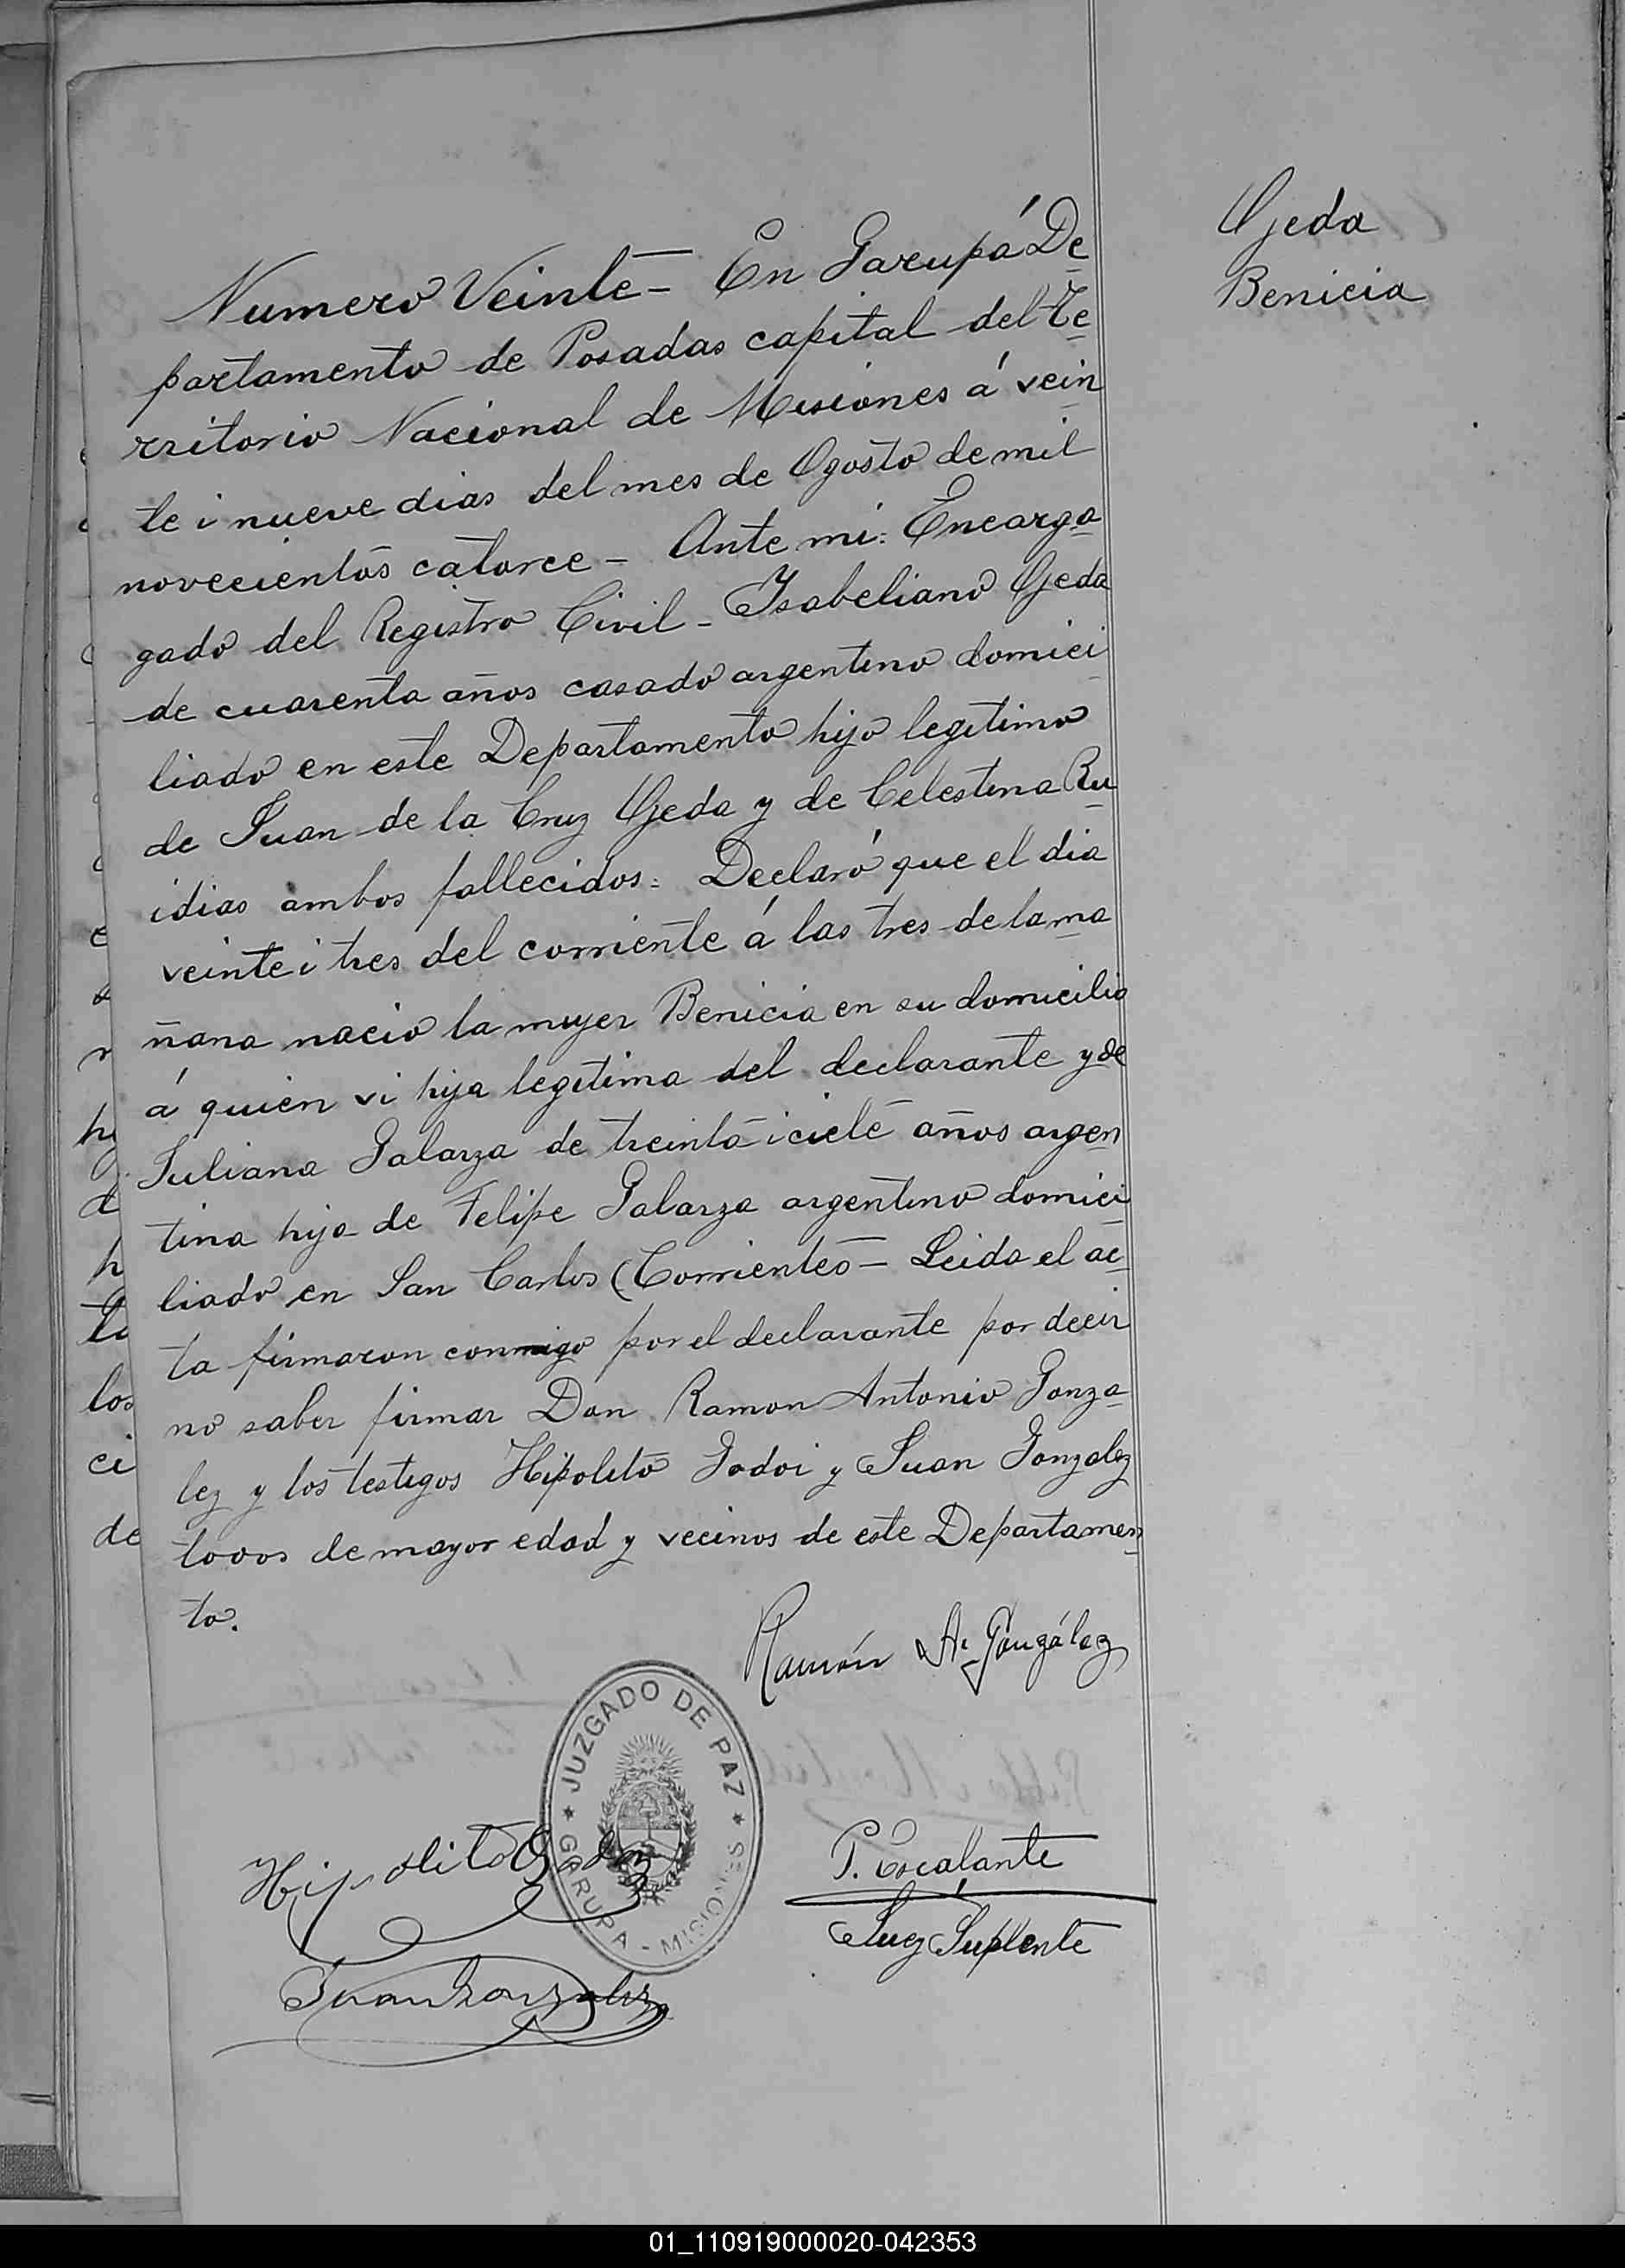 Ojeda
Benicia
Numero Veinte - En Garupá De
partamento de Posadas capital del Te
rritorio Nacional de Misiones á vein
te i nueve dias del mes de Agosto de mil
novecientos catorce - Ante mi: Encarga
gado del Registro Civil - Ysabeliano Ojeda
de cuarenta años casado argentino domici
liado en este Departamento hijo legitimo
de Juan de la Cruz Ojeda y de Celestina Ru
idias ambos fallecidos: Declaró que el dia
veinte i tres del corriente á las tres de la ma
ñana nacio la mujer Benicia en su domicilio
á quien vi hija legitima del declarante y de
Juliana Galarza de treinta i ciete años argen
tina hija de Felipe Galarza argentino domici
liado en San Carlos (Corrientes - Leida el ac
ta firmaron conmigo por el declarante por decir
no saber firmar Don Ramon Antonio Gonza
lez y los testigos Hipolito Godoi y Juan Gonzalez
todos de mayor edad y vecinos de este Departamen
to.
Ramón A. González
JUZGADO DE PAZ
GARUPA - MISIONES
Hipolito Godoi
P. Escalante
Juez Suplente
Juan Gonzalez
01_110919000020-042353